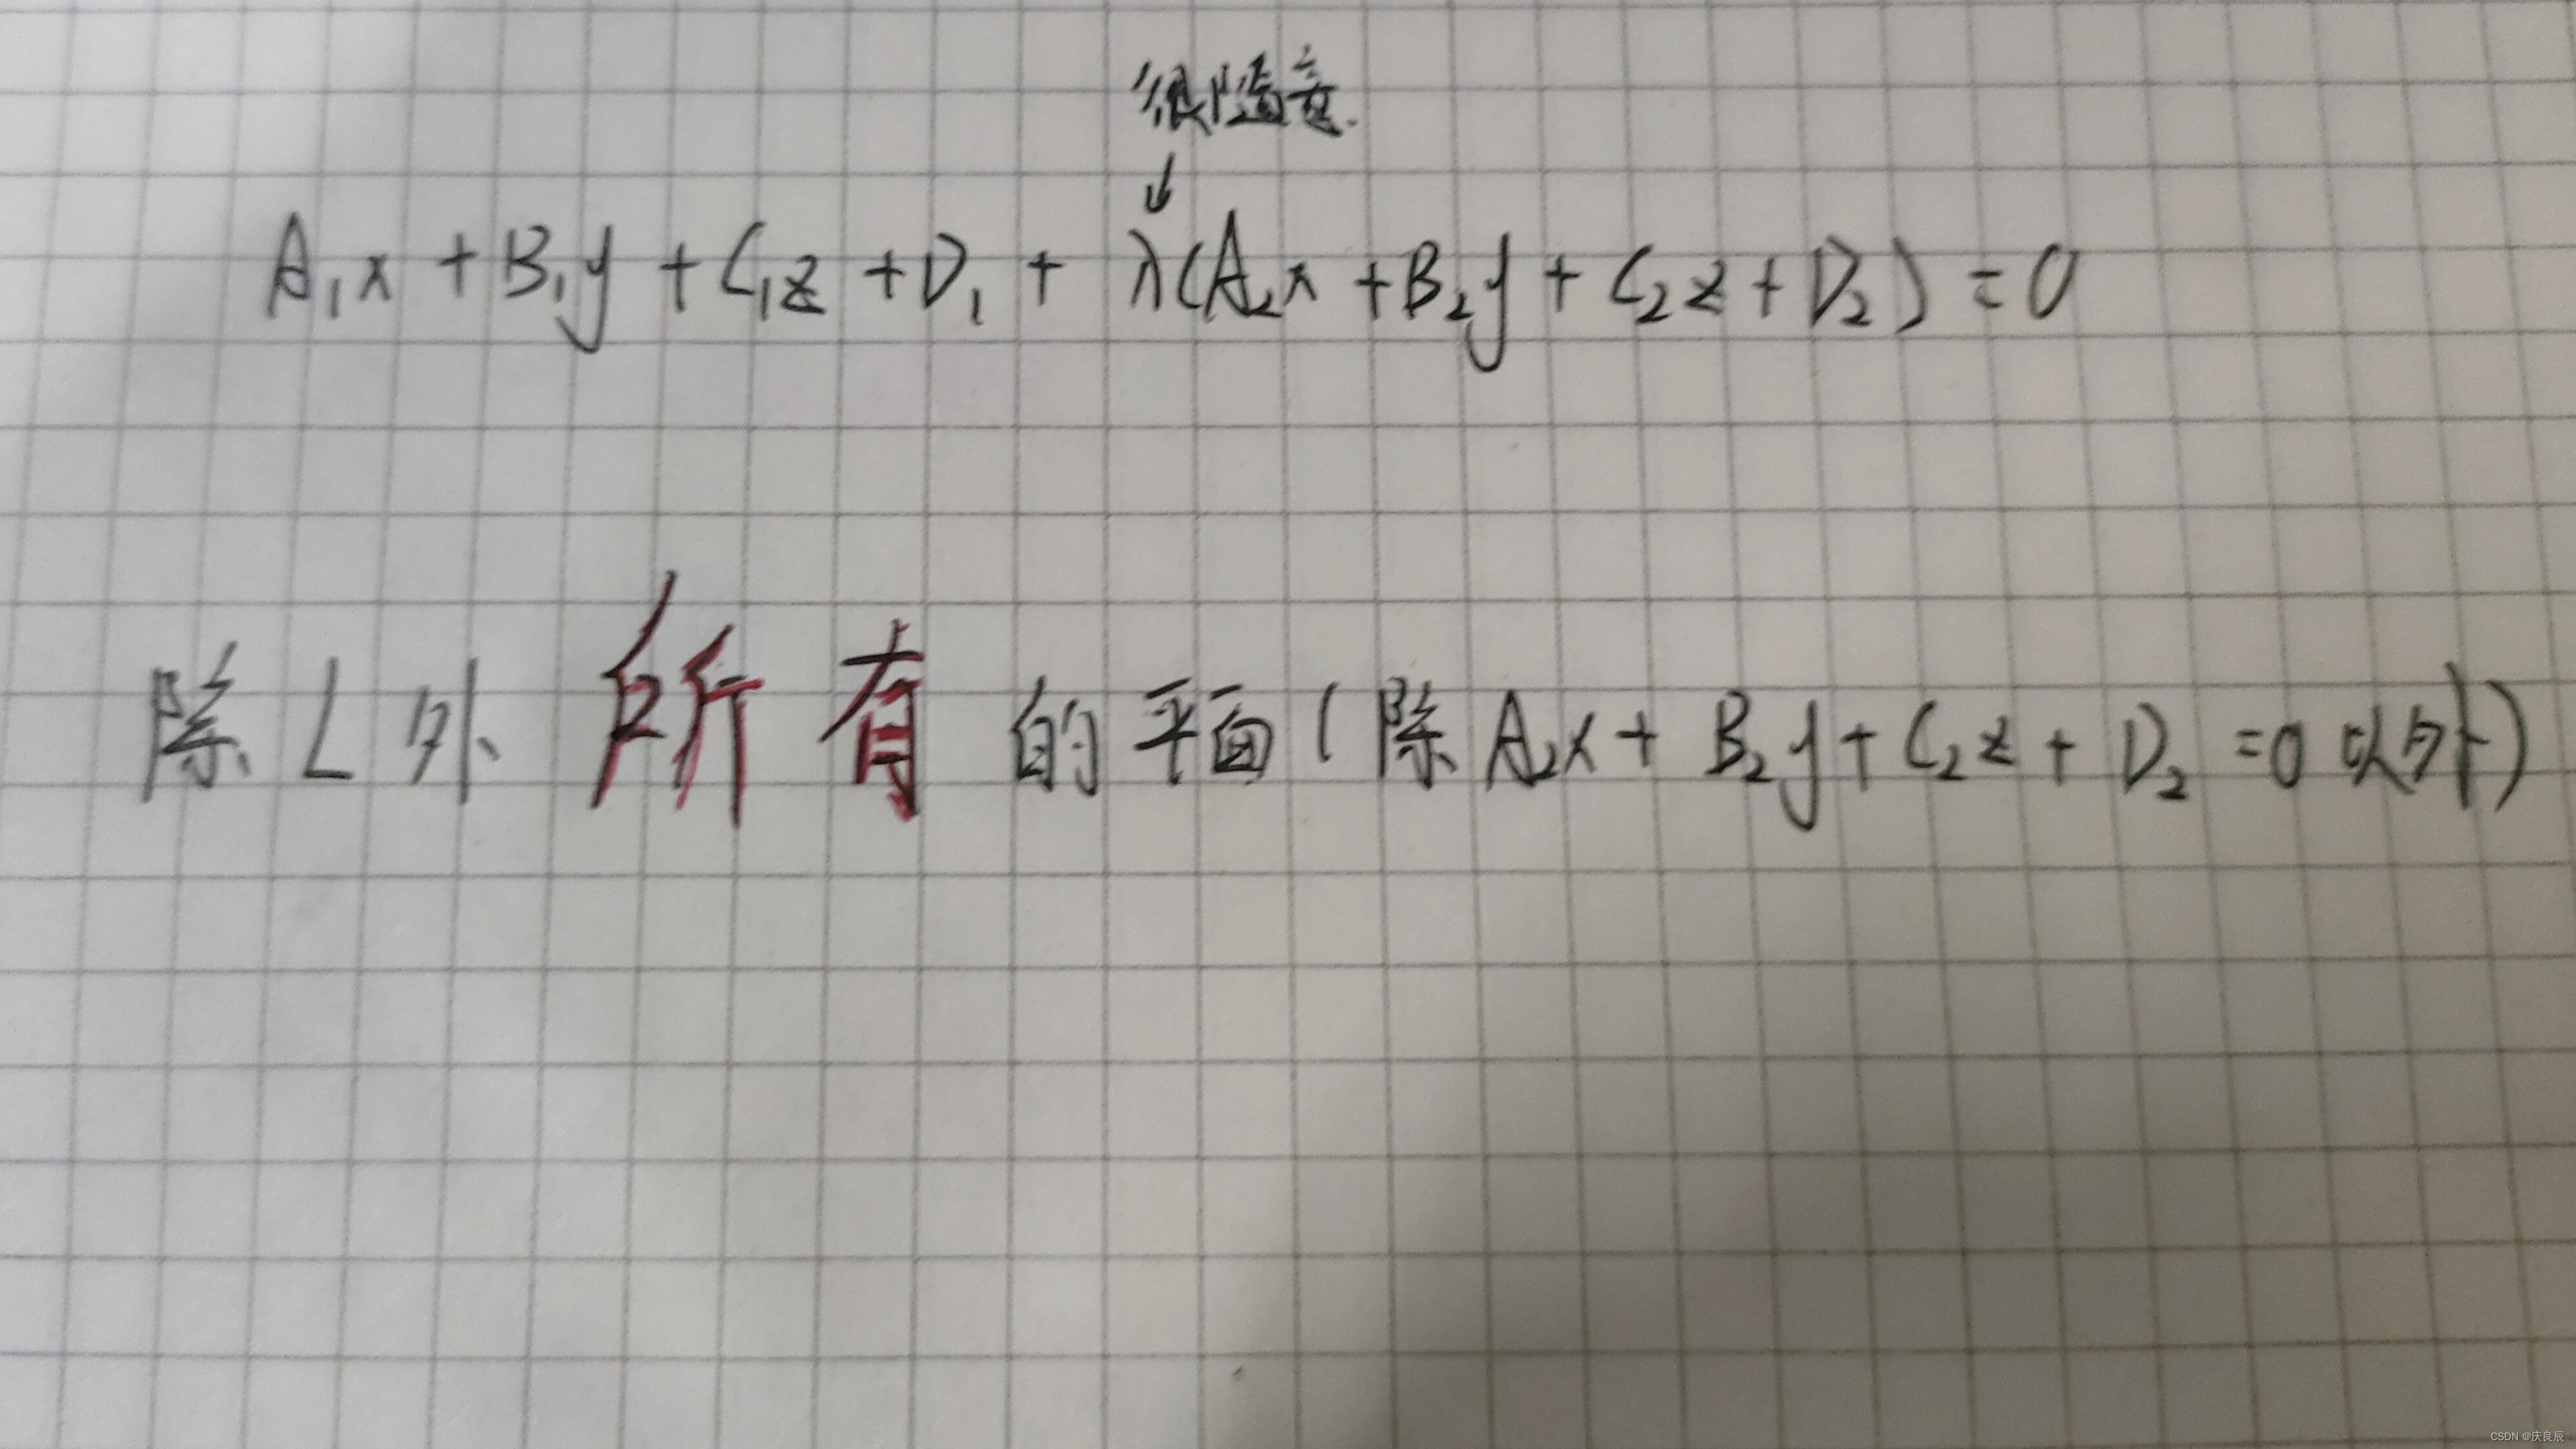 很随意.
A₁x + B₁y + C₁z + D₁ + λ(A₂x + B₂y + C₂z + D₂) = 0
除 L 外 所有 的平面 ( 除 A₂x + B₂y + C₂z + D₂ = 0 以外 )
CSDN @庆良辰